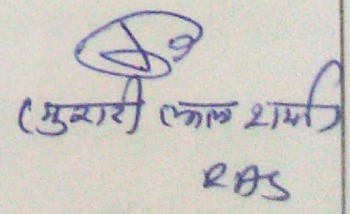 (मुरारी लाल शर्मा)
RAS